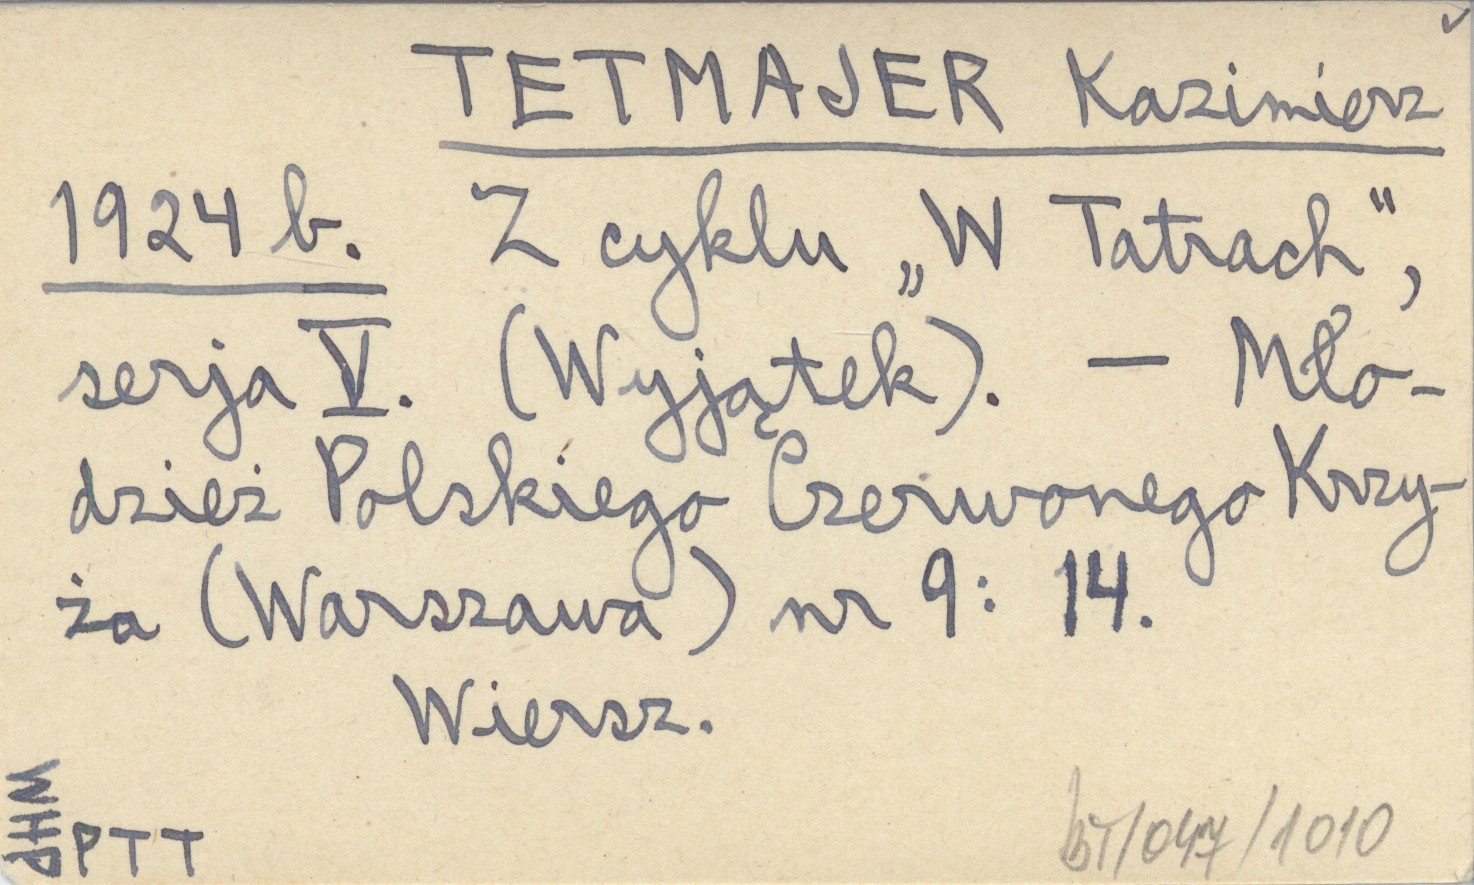 TETMAJER Kazimierz
1924 b. Z cyklu „W Tatrach“,
serja V. (Wyjątek). — Mło-
dzież Polskiego Czerwonego Krzy-
ża (Warszawa) nr 9: 14.
Wiersz.
WHP
PTT
bT/047/1010